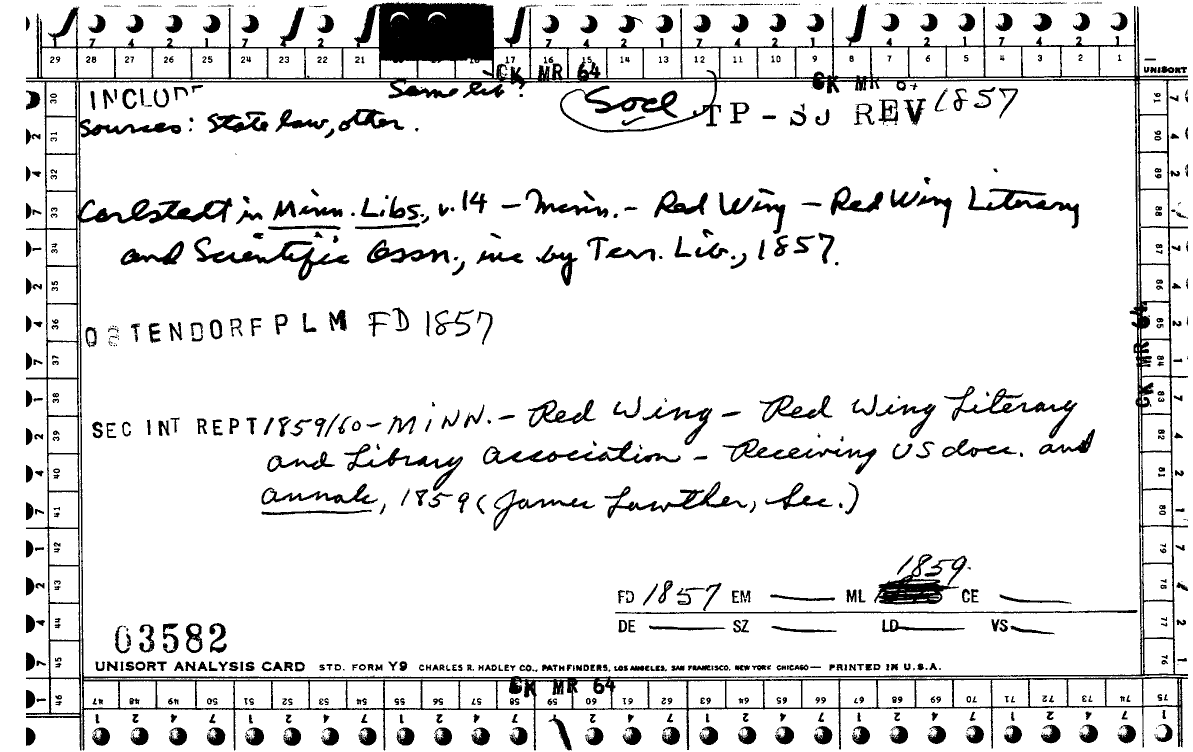 7 4 2 1 7 4 2 1 7 4 2 1 7 4 2 1 7 4 2 1
29 28 27 26 25 24 23 22 21 17 16 15 14 13 12 11 10 9 8 7 6 5 4 3 2 1 UNISORT
CK MR 64
Same lib?
INCLUDE
Socl TP-SJ REV 1857
Sources: State law, other.
Carlstedt in Minn. Libs., v.14 – Minn. – Red Wing – Red Wing Literary
and Scientific Assn., inc by Terr. Lib., 1857.
OSTENDORF PLM FD 1857
SEC INT REPT 1859/60 – MINN. – Red Wing – Red Wing Literary
and Library Association – Receiving US docs. and
Annals, 1859 (James Lawther, Sec.)
1859.
FD 1857 EM — ML CE —
DE — SZ — LD — VS —
03582
UNISORT ANALYSIS CARD STD. FORM Y9 CHARLES R. HADLEY CO., PATHFINDERS, LOS ANGELES, SAN FRANCISCO, NEW YORK CHICAGO — PRINTED IN U.S.A.
CK MR 64
47 48 49 50 51 52 53 54 55 56 57 58 59 60 61 62 63 64 65 66 67 68 69 70 71 72 73 74 75
30 31 32 33 34 35 36 37 38 39 40 41 42 43 44 45 46
91 90 89 88 87 86 85 84 83 82 81 80 79 78 77 76
CK MR 64